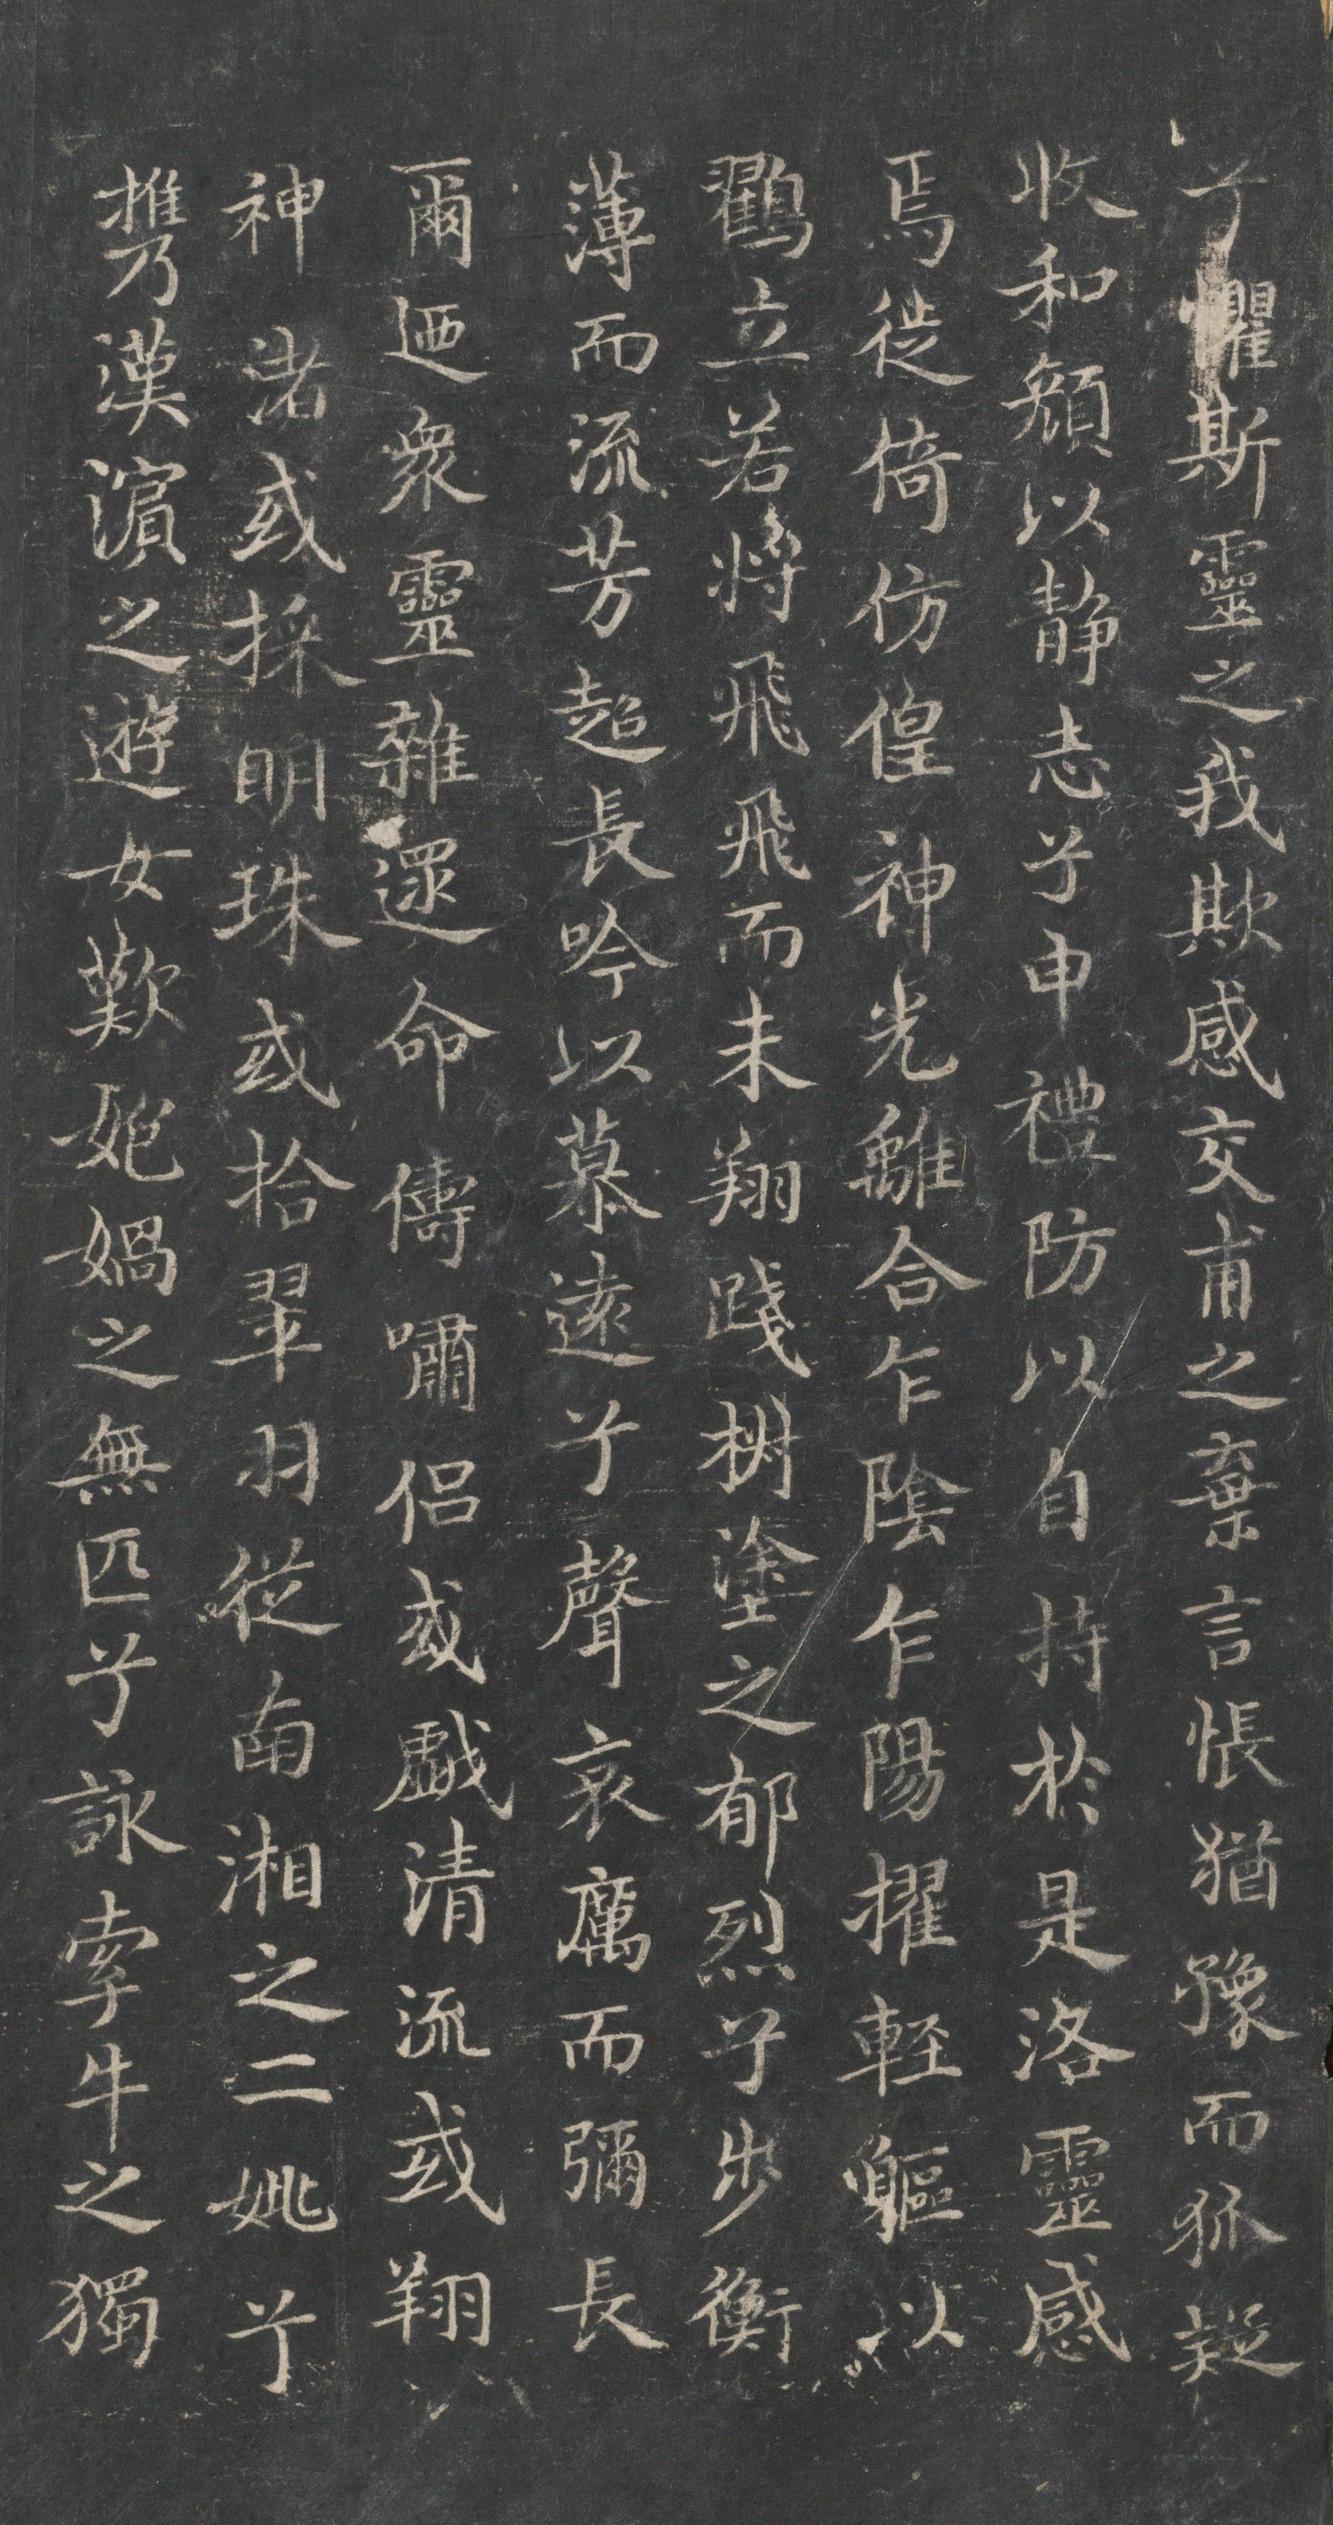 兮懼斯靈之我欺感交甫之棄言悵猶豫而狐疑
收和顏以静志兮申禮防以自持於是洛靈感
焉徙倚仿偟神光離合乍陰乍陽擢輕軀以
鸛立若將飛飛而未翔踐椒塗之郁烈兮步衡
薄而流芳超長吟以慕遠兮聲哀厲而彌長
爾迺衆靈雜遝命儔嘯侶或戲清流或翔
神渚或採明珠或拾翠羽從南湘之二姚兮
攜漢濱之遊女歎㚿媧之無匹兮詠牽牛之獨